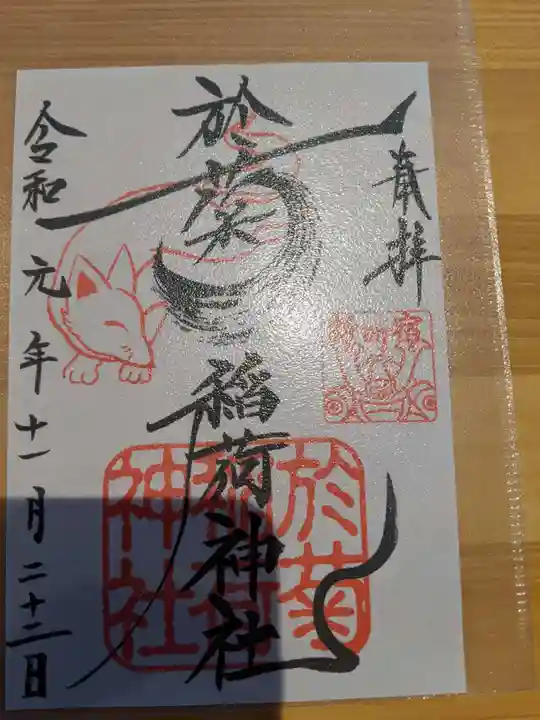 奉拝
於菊稲荷神社
於菊
稲荷
神社
令和元年十一月二十二日